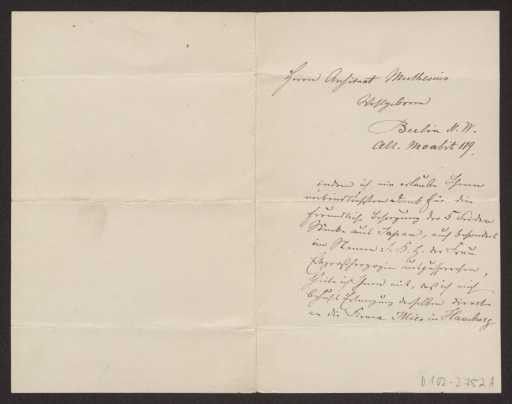 Herrn Architect Muthesius
Wohlgeboren
Berlin N. W.
Alt. Moabit 119.
Indem ich mir erlaube Ihnen
verbindlichsten Dank für die
freundliche Besorgung der 5 Seiden
aus Japan, auch besonders
im Namen S. K. H. der Frau
Erbgroßherzogin auszusprechen,
theile ich Ihnen mit, daß ich mich
behufs Erlangung derselben direct
an die Firma Illies in Hamburg
D 102-2752A